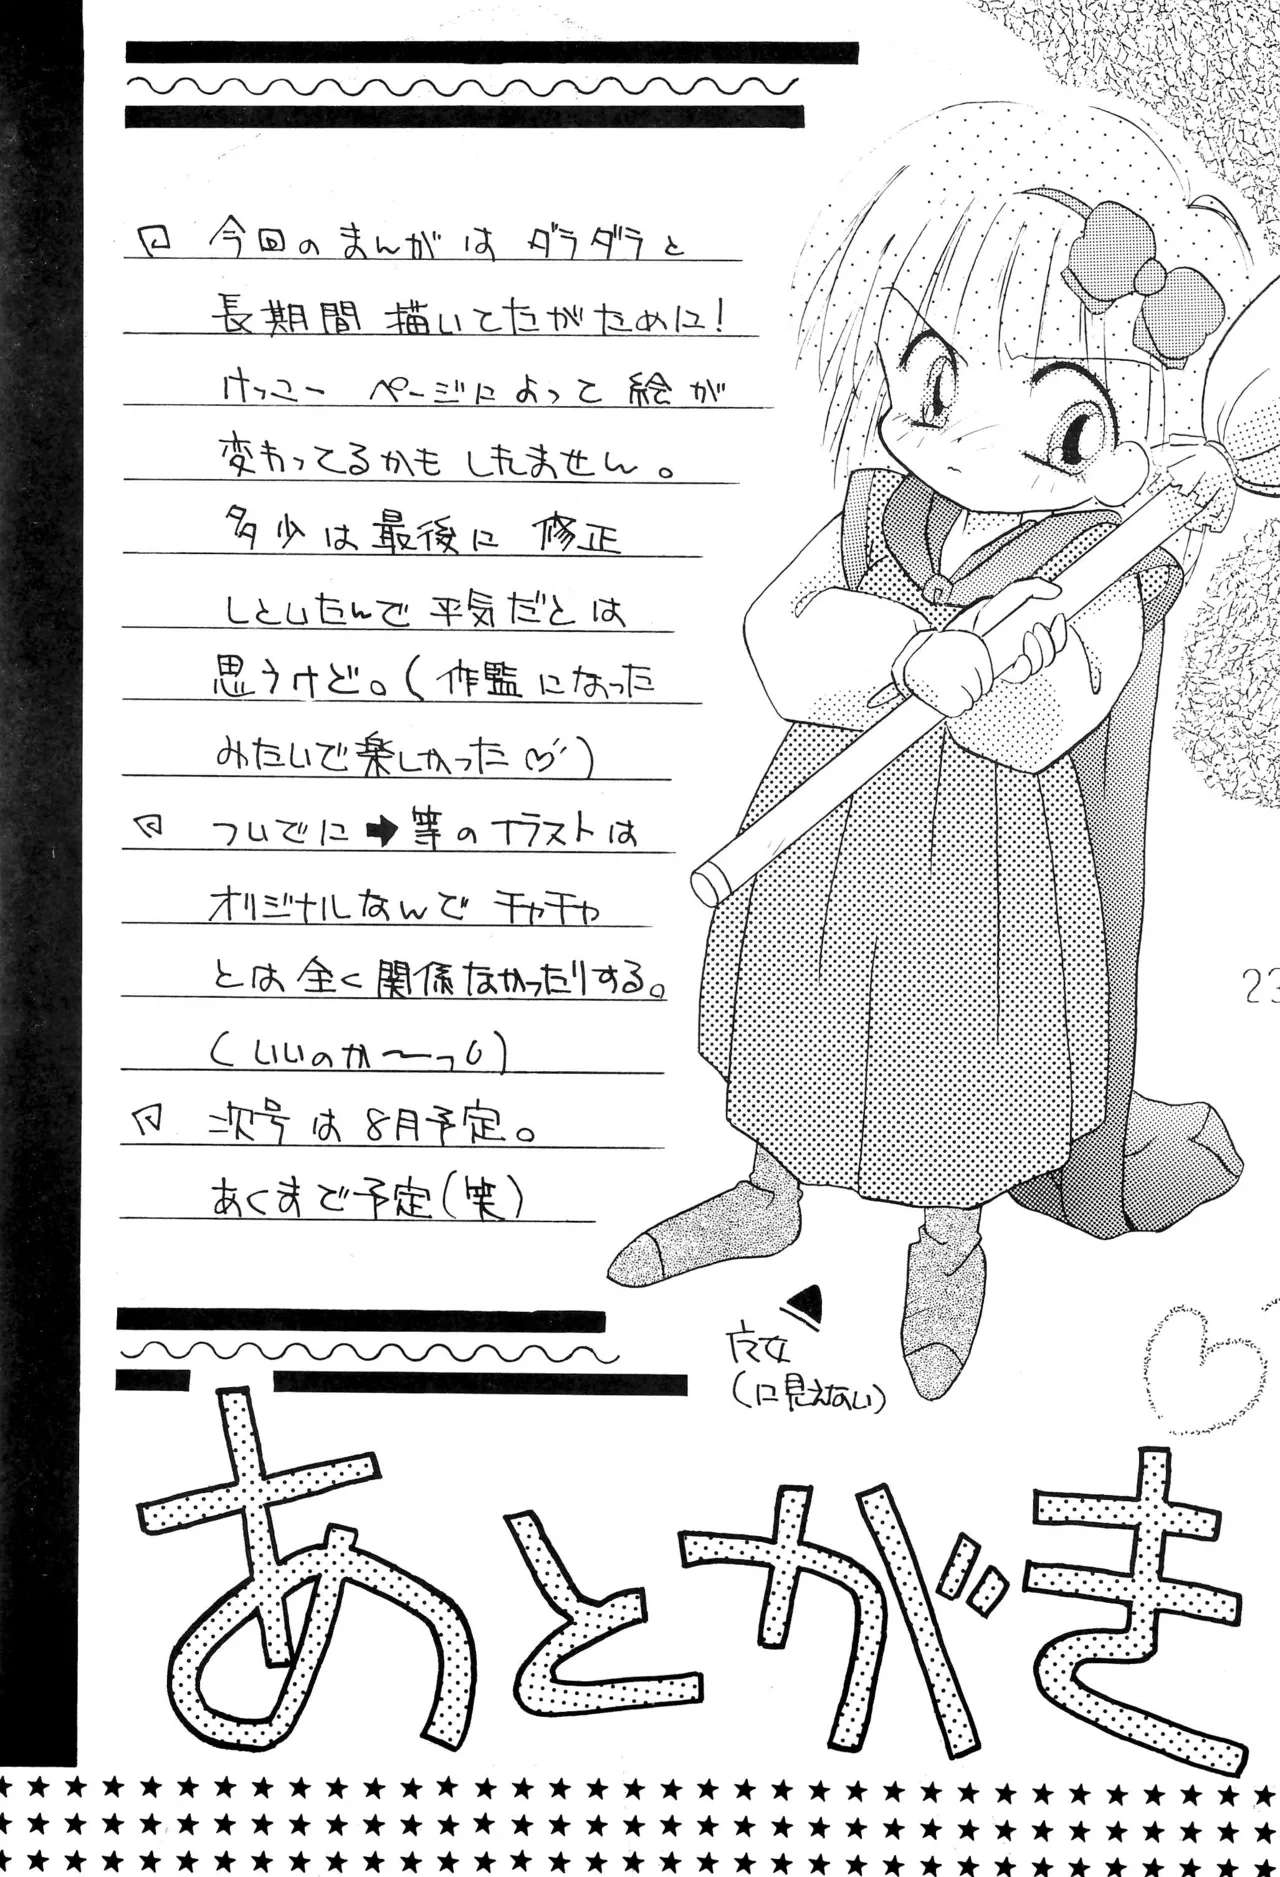 今回のまんがは ダラダラと
長期間 描いてたがために!
けっこー ページによって 絵が
変わってるかも しれません。
多少は最後に 修正
しといたんで 平気だとは
思うけど。(作監になった
みたいで楽しかった♡)
ついでに➡等のイラストは
オリジナルなんで チャチャ
とは 全く 関係なかったりする。
(いいのか〜〜っ)
次号は 8月予定。
あくまで予定(笑)
(に見えない)
あとがき
23